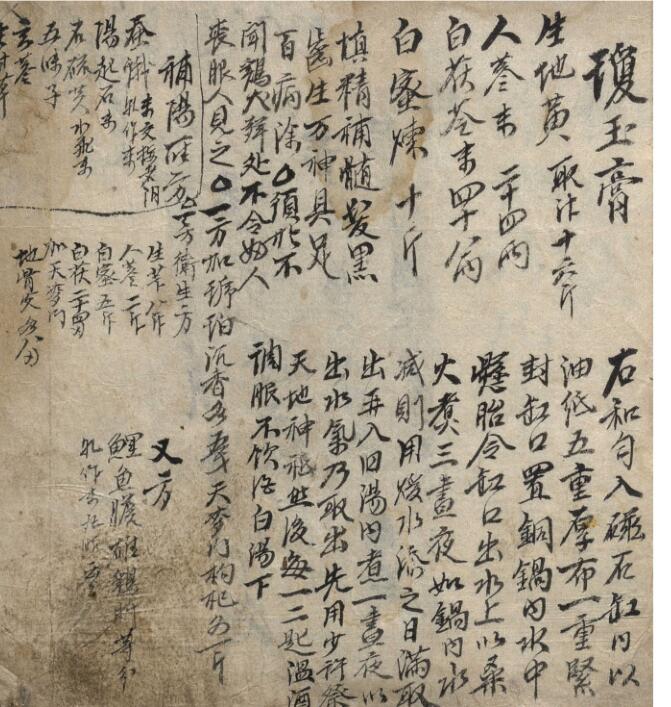 瓊玉膏
生地黄 取汁十六斤
人蔘末 二十四兩
白茯苓末四十
白蜜煉 十斤
填精補髓髮黑
齒生万神具足
百病除〇須於不
聞鷄犬聲处不令婦人
喪服人見之〇一方加琥珀沉香各五戔天麥门枸杞各一斤
右和匀入磁石缸内以
油紙五重厚布一重緊
封缸口置銅鍋内水中
懸胎令缸口出水上以桑
火煮三晝夜如鍋内水
减則用煖水添之日滿取
出再入旧湯内煮一晝夜以
出水氣乃取出先用少許祭
天地神祇然後每一二匙温酒
調服不飲酒白湯下
衛生方
生芐八斤
人蔘二斤
白蜜五斤
白茯二十四兩
加天麥门
地骨皮各八
又方
鯉魚膽雄鷄肝等分
乳作末
補陽
蚕蛾末
陽起石末
石硫黄水飛末
五味子
玄蔘